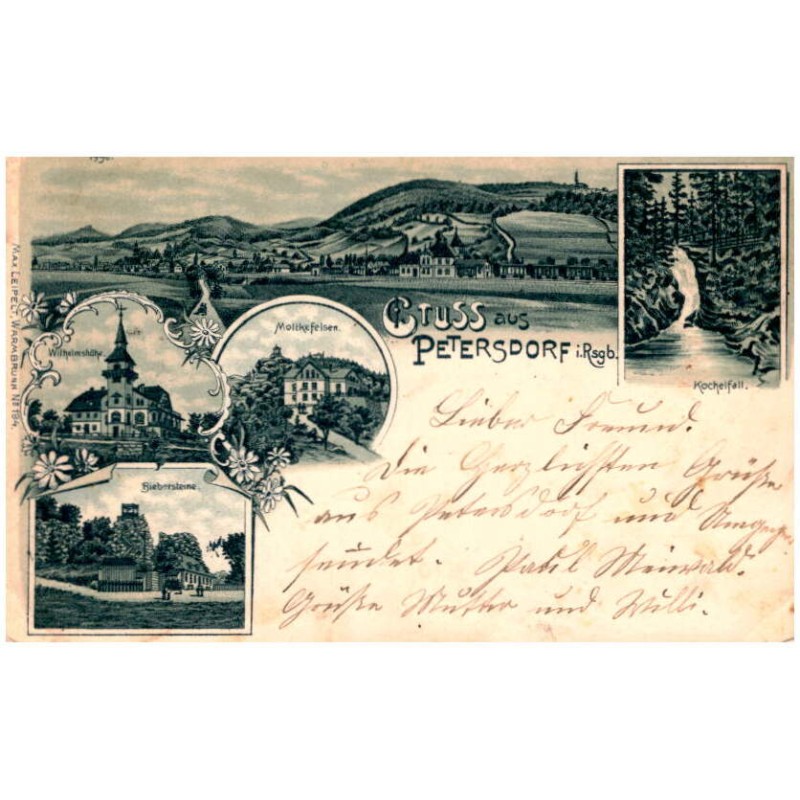 MAX LEIPELT, WARMBRUNN No 194.
Gruss aus
Petersdorf i. Rsgb.
Wilhelmshöhe.
Moltkefelsen.
Kochelfall.
Biebersteine.
Lieber Freund.
Die Herzlichsten Grüße
aus Petersdorf und
sendet. Paul Meiwald.
Grüße Mutter und Willi.